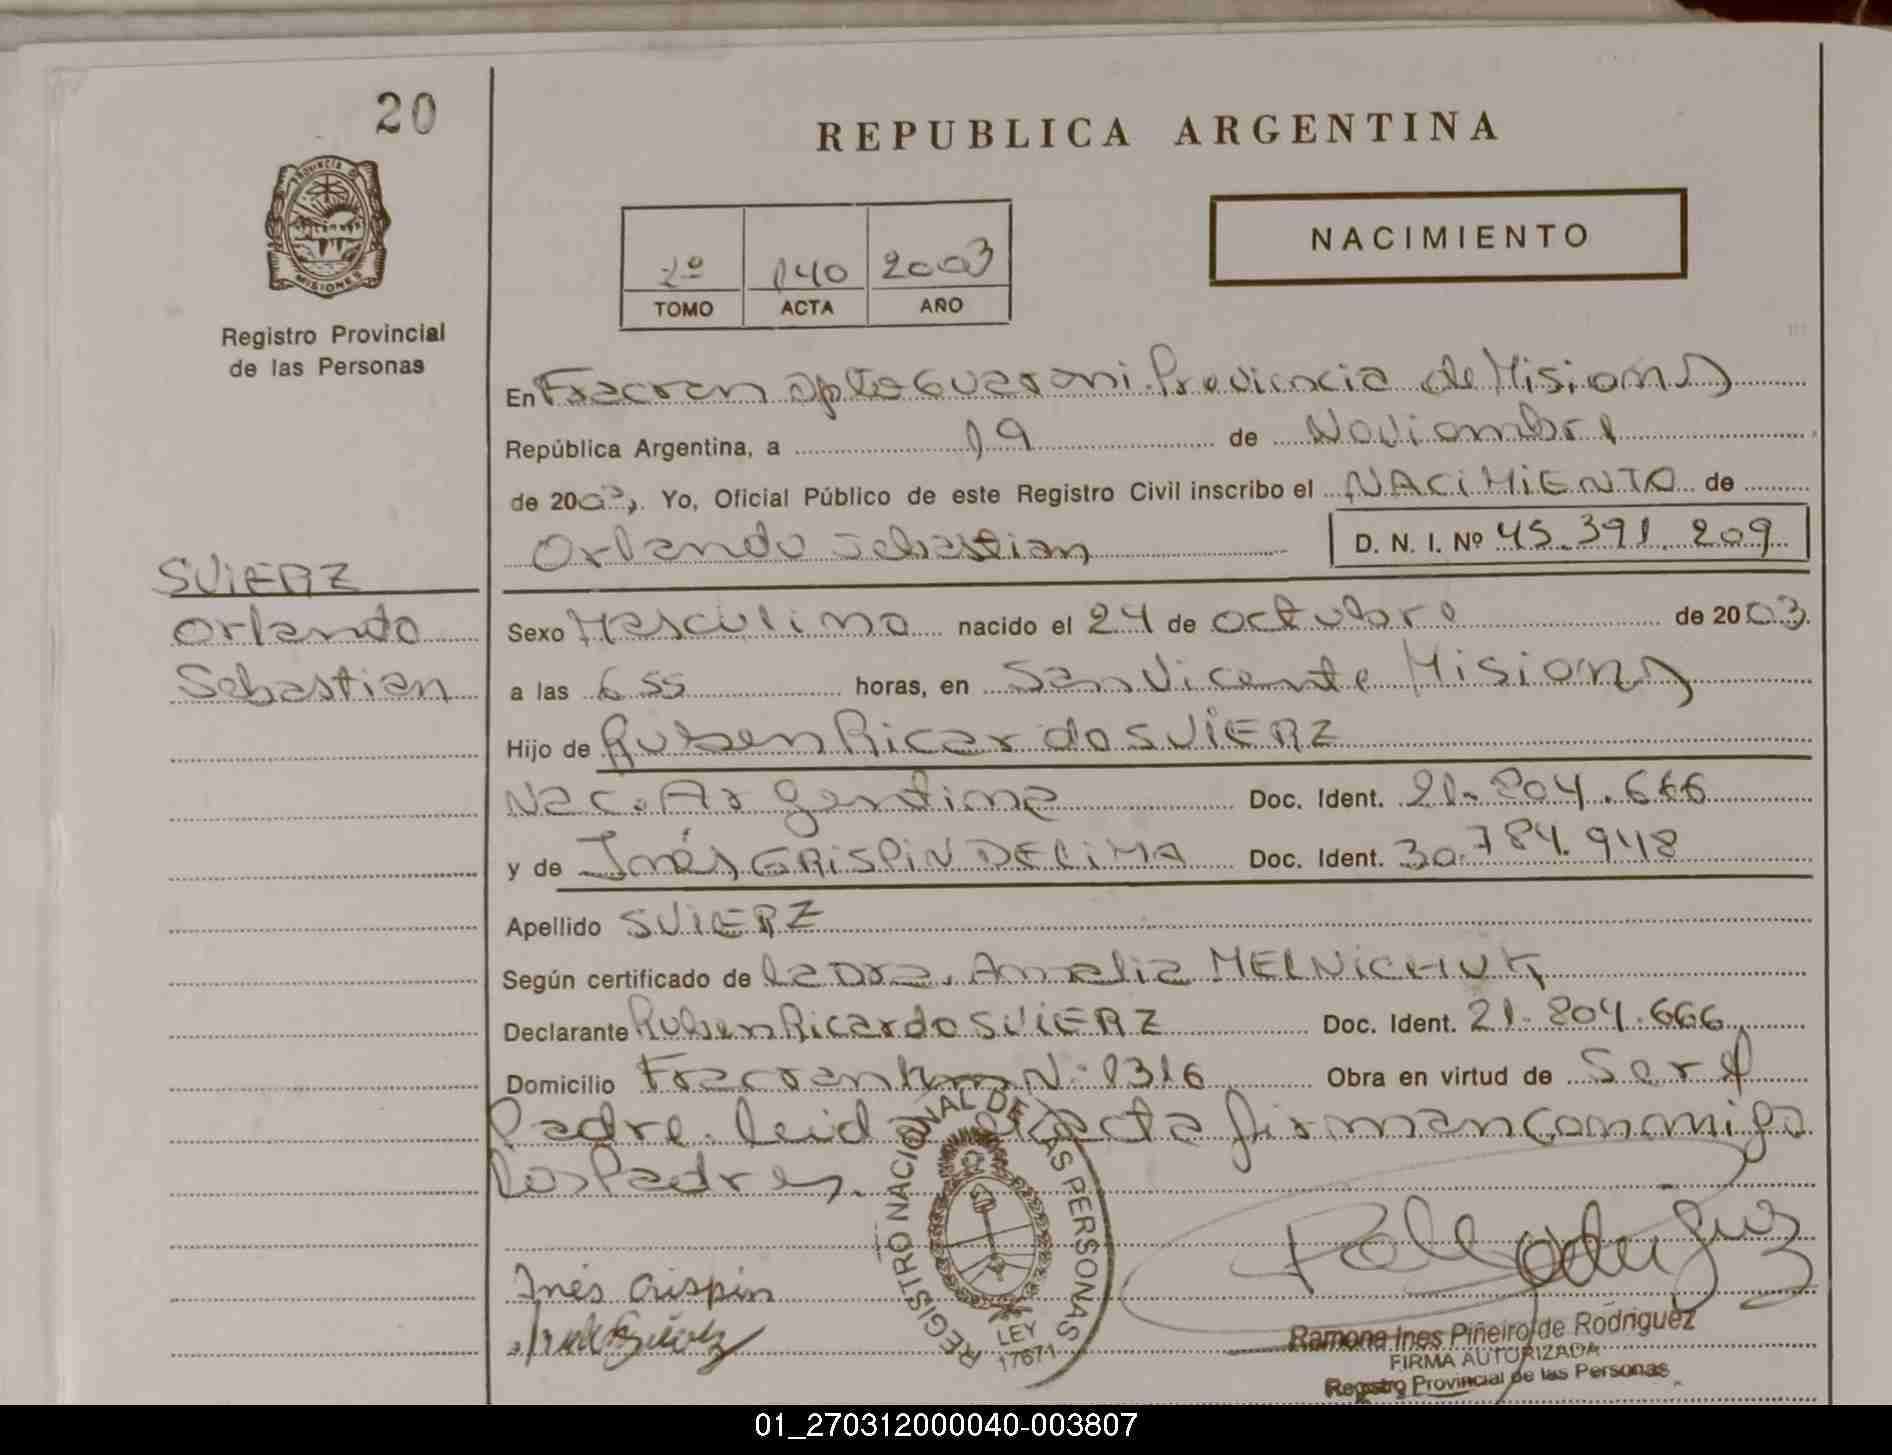 20
PROVINCIA DE
MISIONES
Registro Provincial
de las Personas
SVIERZ
Orlando
Sebastian
REPUBLICA ARGENTINA
NACIMIENTO
2º 140 2003
TOMO ACTA AÑO
En Fracran Dpto Guarani Provincia de Misiones
República Argentina, a 19 de Noviembre
de 2003, Yo, Oficial Público de este Registro Civil inscribo el NACIMIENTO de
Orlando Sebastian D. N. I. Nº 45.391.209
Sexo Masculino nacido el 24 de octubre de 2003.
a las 6 55 horas, en San Vicente Misiones
Hijo de Ruben Ricardo SVIERZ
Nac. Argentina Doc. Ident. 21.804.666
y de Inés CRISPIN DE LIMA Doc. Ident. 30.784.948
Apellido SVIERZ
Según certificado de la Dra. Amalia MELNICHUK
Declarante Ruben Ricardo SVIERZ Doc. Ident. 21.804.666
Domicilio Fracran Km N: 1316 Obra en virtud de Ser el
Padre. leida el acta firman conmigo
los Padres.
REGISTRO NACIONAL DE LAS PERSONAS
LEY
17671
Inés Crispin
Ramona Ines Piñeiro de Rodriguez
FIRMA AUTORIZADA
Registro Provincial de las Personas
01_270312000040-003807